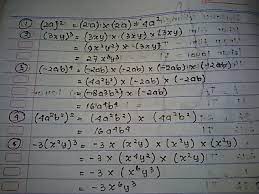 ① (2a)² = (2a) × (2a) = 4a²
② (3xy)³ = (3xy) × (3xy) × (3xy)
= (9x²y²) × (3xy)
= 27x³y³
③ (-2ab)⁴ = (-2ab) × (-2ab) × (-2ab) × (-2ab)
= (4a²b²) × (-2ab) × (-2ab)
= (-8a3b3) × (-2ab)
= 16a4b4
④ (4a²b²)² = (4a²b²) × (4a²b²)
= 16a4b4
⑤ -3(x²y)³ = -3 × (x²y) × (x²y) × (x²y)
= -3 × (x4y²) × (x²y)
= -3 × (x⁶y³)
= -3x⁶y³